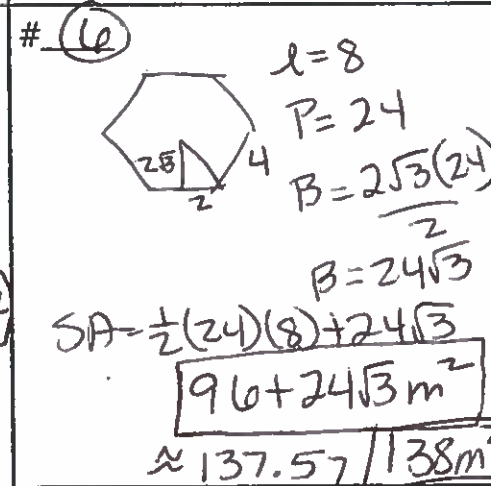 # 6
l = 8
P = 24
2√3
4
2
B = 2√3(24)
2
B = 24√3
SA = 1/2(24)(8) + 24√3
96 + 24√3 m²
≈ 137.57 / 138m²